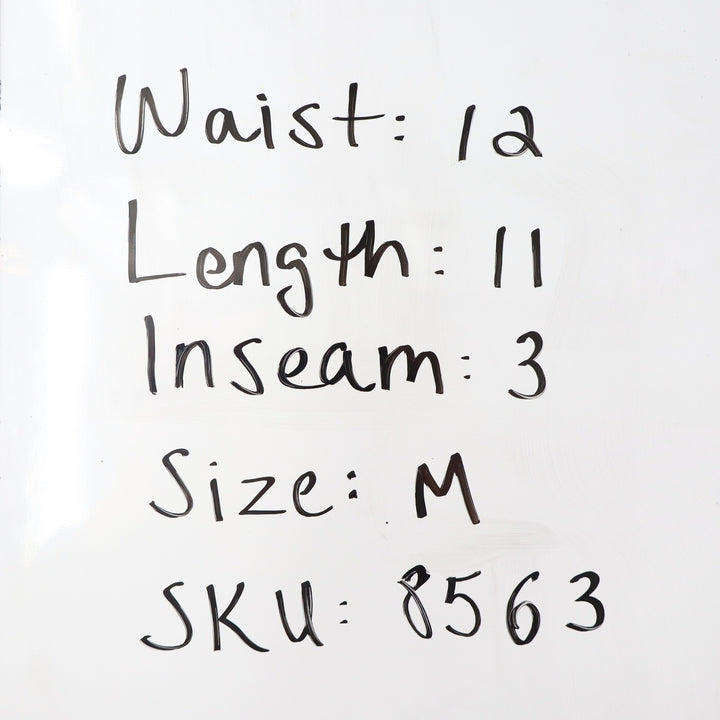 Waist: 12
Length: 11
Inseam: 3
Size: M
SKU: 8563